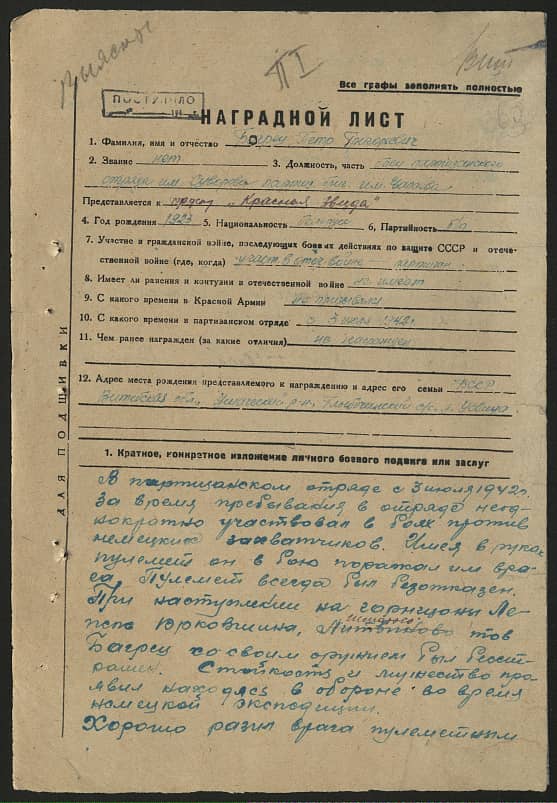 ПІ
Все графы заполнять полностью
ПОСТУПИЛО
НАГРАДНОЙ ЛИСТ
1. Фамилия, имя и отчество Багрец Петр Григорьевич
2. Звание нет 3. Должность, часть боец партизанского
отряда им. Суворова партиз. бриг. им. Чапаева
Представляется к ордену „Красная звезда"
4. Год рождения 1923 5. Национальность белорус 6. Партийность б/п
7. Участие в гражданской войне, последующих боевых действиях по защите СССР и отече-
ственной войне (где, когда) участ. в отеч. войне партизан
8. Имеет ли ранения и контузии в отечественной войне не имеет
9. С какого времени в Красной Армии не призывался
10. С какого времени в партизанском отряде с 3 июля 1942 г.
11. Чем ранее награжден (за какие отличия) не награжден
12. Адрес места рождения представляемого к награждению и адрес его семьи БССР
Витебская обл., Ушачский р-н,
ДЛЯ ПОДШИВКИ
1. Краткое, конкретное изложение личного боевого подвига или заслуг
В партизанском отряде с 3 июля 1942 г.
За время пребывания в отряде неод-
нократно участвовал в боях против
немецких захватчиков. Имея в руках
пулемет он в бою поражал им вра-
га. Пулемет всегда был безотказен.
При наступлении на гарнизоны Ле-
пель Юрковщина, тов
Багрец со своим оружием был бесст-
рашен. Стойкость и мужество про-
явил находясь в обороне во время
немецкой экспедиции.
Хорошо разил врага пулеметным